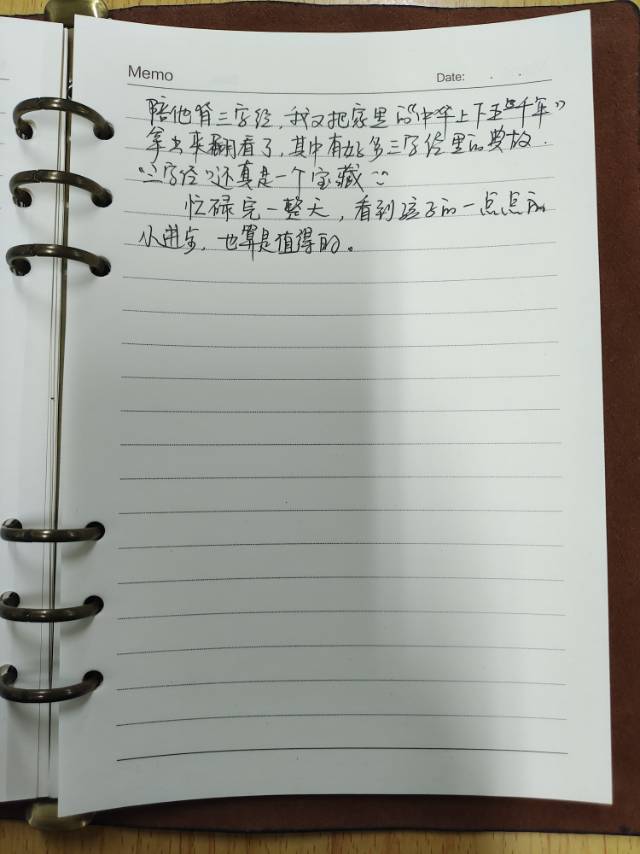 Memo
Date: . .
陪他背三字经，我又把家里的“中华上下五千年”
拿出来翻看了，其中有好多三字经里的典故．
“三字经”还真是一个宝藏
忙碌完一整天，看到孩子的一点点的
小进步，也算是值得的。